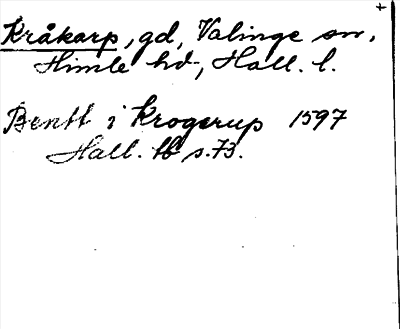 +
Kråkarp, gd, Valinge sn,
Himle hd, Hall. l.
Bentt i Krogerup 1597
Hall. tb s. 73.